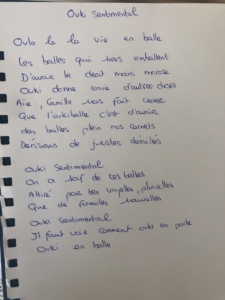 Ouki Sentimental
Oula la la vie en balle
Les balles qui nous emballent
D'avoir le droit moins morose
Ouki donne envie d'autres choses
Aïe, Camille nous fait
Que l'oukiballe c'est d'avoir
des balles plein nos carnets
Décisions de juristes
Ouki Sentimental
On a soif de tes balles
Attiré par tes voyelles, plurielles
Que de formules nouvelles
Ouki Sentimental
Il faut voir comment on parle
Ouki en balle